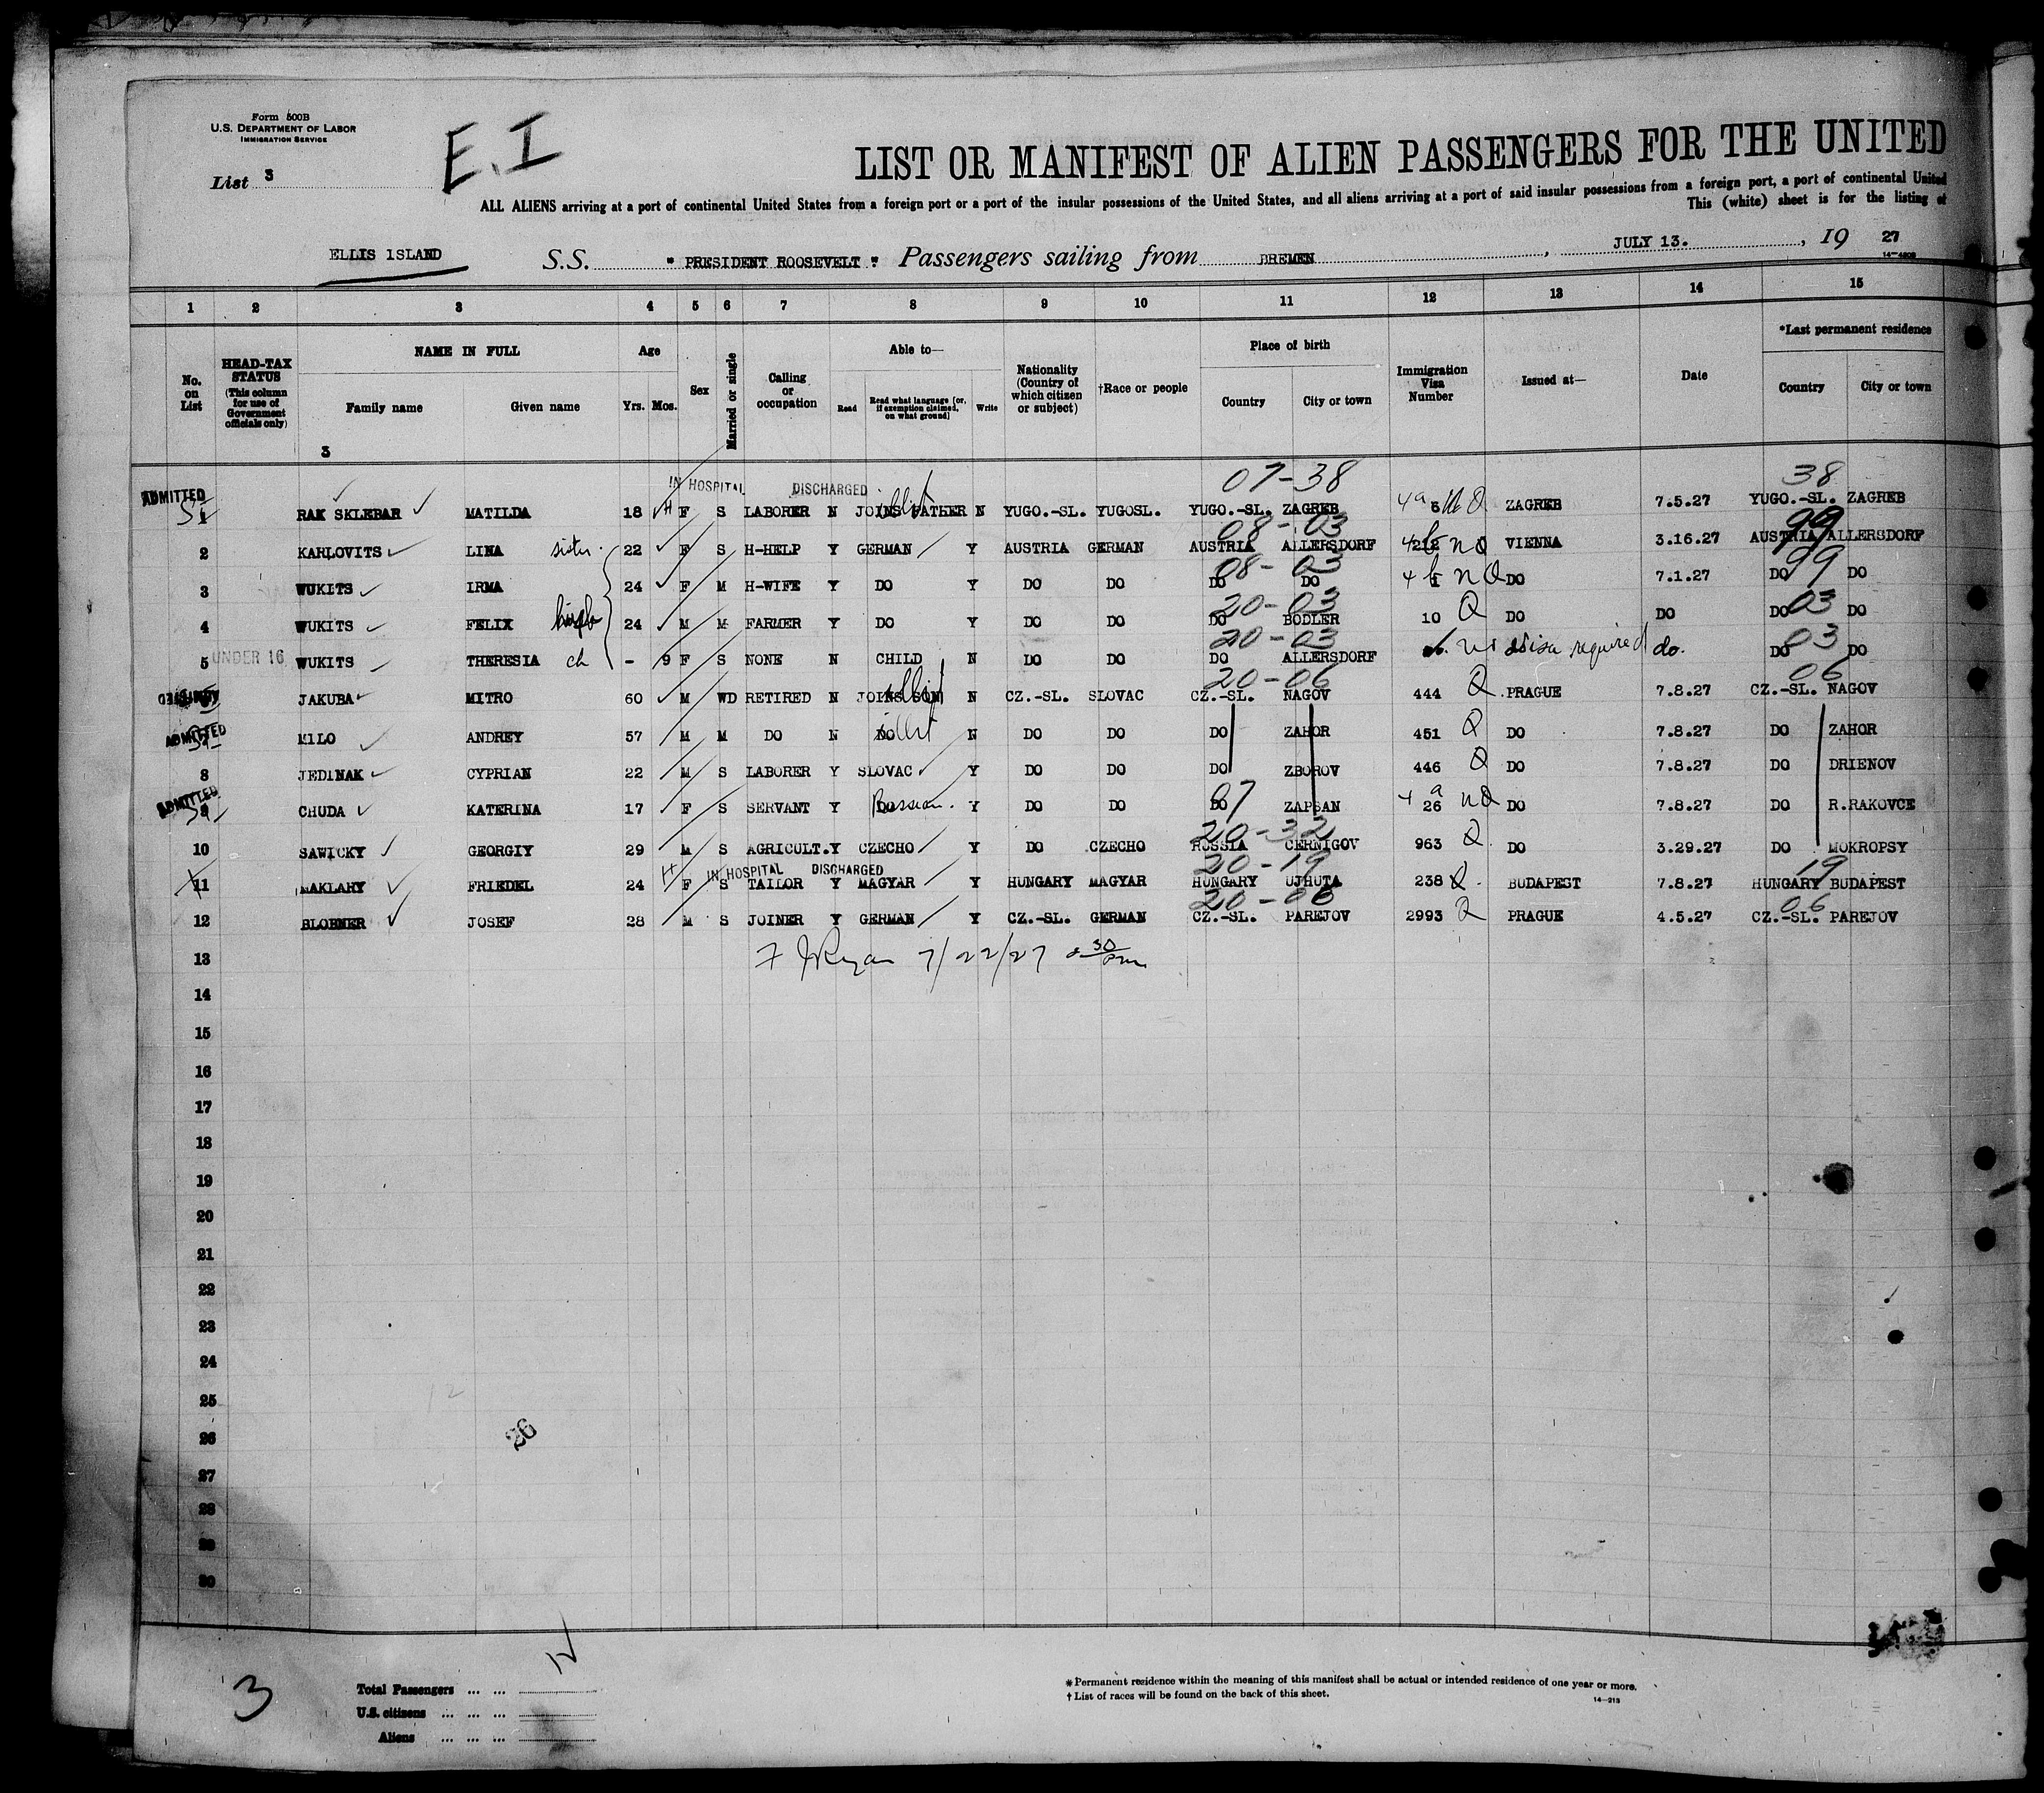 Form 500B
U.S. DEPARTMENT OF LABOR
IMMIGRATION SERVICE
List 3
E.I
LIST OR MANIFEST OF ALIEN PASSENGERS FOR THE UNITED
ALL ALIENS arriving at a port of continental United States from a foreign port or a port of the insular possessions of the United States, and all aliens arriving at a port of said insular possessions from a foreign port, a port of continental United
This (white) sheet is for the listing of
ELLIS ISLAND S.S. " PRESIDENT ROOSEVELT " Passengers sailing from BREMEN , JULY 13. , 19 27
14—4208
1 2 3 4 5 6 7 8 9 10 11 12 13 14 15
No. on List HEAD-TAX STATUS (This column for use of Government officials only) NAME IN FULL Family name Given name Age Yrs. Mos. Sex Married or single Calling or occupation Able to— Read Read what language [or, if exemption claimed, on what ground] Write Nationality (Country of which citizen or subject) †Race or people Place of birth Country City or town Immigration Visa Number Issued at— Date *Last permanent residence Country City or town
3
IN HOSPITAL DISCHARGED 07-38 38
ADMITTED 1 RAK SKLEBAR MATILDA 18 F S LABORER N JOINS FATHER N YUGO.-SL. YUGOSL. YUGO.-SL. ZAGREB 4a 5 NQ ZAGREB 7.5.27 YUGO.-SL. ZAGREB
08-03 99
2 KARLOVITS LINA sister 22 F S H-HELP Y GERMAN Y AUSTRIA GERMAN AUSTRIA ALLERSDORF NQ VIENNA 3.16.27 AUSTRIA ALLERSDORF
08-03 99
3 WUKITS IRMA 24 F M H-WIFE Y DO Y DO DO DO DO 4 b 1 NQ DO 7.1.27 DO DO
20-03 03
4 WUKITS FELIX 24 M M FARMER Y DO Y DO DO DO BODLER 10 Q DO DO DO DO
20-03 03
5 UNDER 16 WUKITS THERESIA ch - 9 F S NONE N CHILD N DO DO DO ALLERSDORF visa required do. DO DO
20-06 06
ADMITTED JAKUBA MITRO 60 M WD RETIRED N JOINS SON N CZ.-SL. SLOVAC CZ.-SL. NAGOV 444 Q PRAGUE 7.8.27 CZ.-SL. NAGOV
ADMITTED MILO ANDREY 57 M M DO N DO illit N DO DO DO ZAHOR 451 Q DO 7.8.27 DO ZAHOR
8 JEDINAK CYPRIAN 22 M S LABORER Y SLOVAC Y DO DO DO ZBOROV 446 Q DO 7.8.27 DO DRIENOV
ADMITTED 9 CHUDA KATERINA 17 F S SERVANT Y DO Russian. Y DO DO DO 07 ZAPSAN 4 a 26 NQ DO 7.8.27 DO R.RAKOVCE
20-32
10 SAWICKY GEORGIY 29 M S AGRICULT. Y CZECHO Y DO CZECHO RUSSIA CERNIGOV 963 Q DO 3.29.27 DO MOKROPSY
IN HOSPITAL DISCHARGED 20-19 19
11 MAKLARY FRIEDEL 24 F S TAILOR Y MAGYAR Y HUNGARY MAGYAR HUNGARY UJHUTA 238 Q BUDAPEST 7.8.27 HUNGARY BUDAPEST
20-06 06
12 BLOHMER JOSEF 28 M S JOINER Y GERMAN Y CZ.-SL. GERMAN CZ.-SL. PAREJOV 2993 Q PRAGUE 4.5.27 CZ.-SL. PAREJOV
13 F J Ryan 7/22/27
14
15
16
17
18
19
20
21
22
23
24
25
12
26
26
27
28
29
30
3
Total Passengers ... ...
U.S. citizens ... ... ...
Aliens ... ... ...
* Permanent residence within the meaning of this manifest shall be actual or intended residence of one year or more.
† List of races will be found on the back of this sheet.
14—213